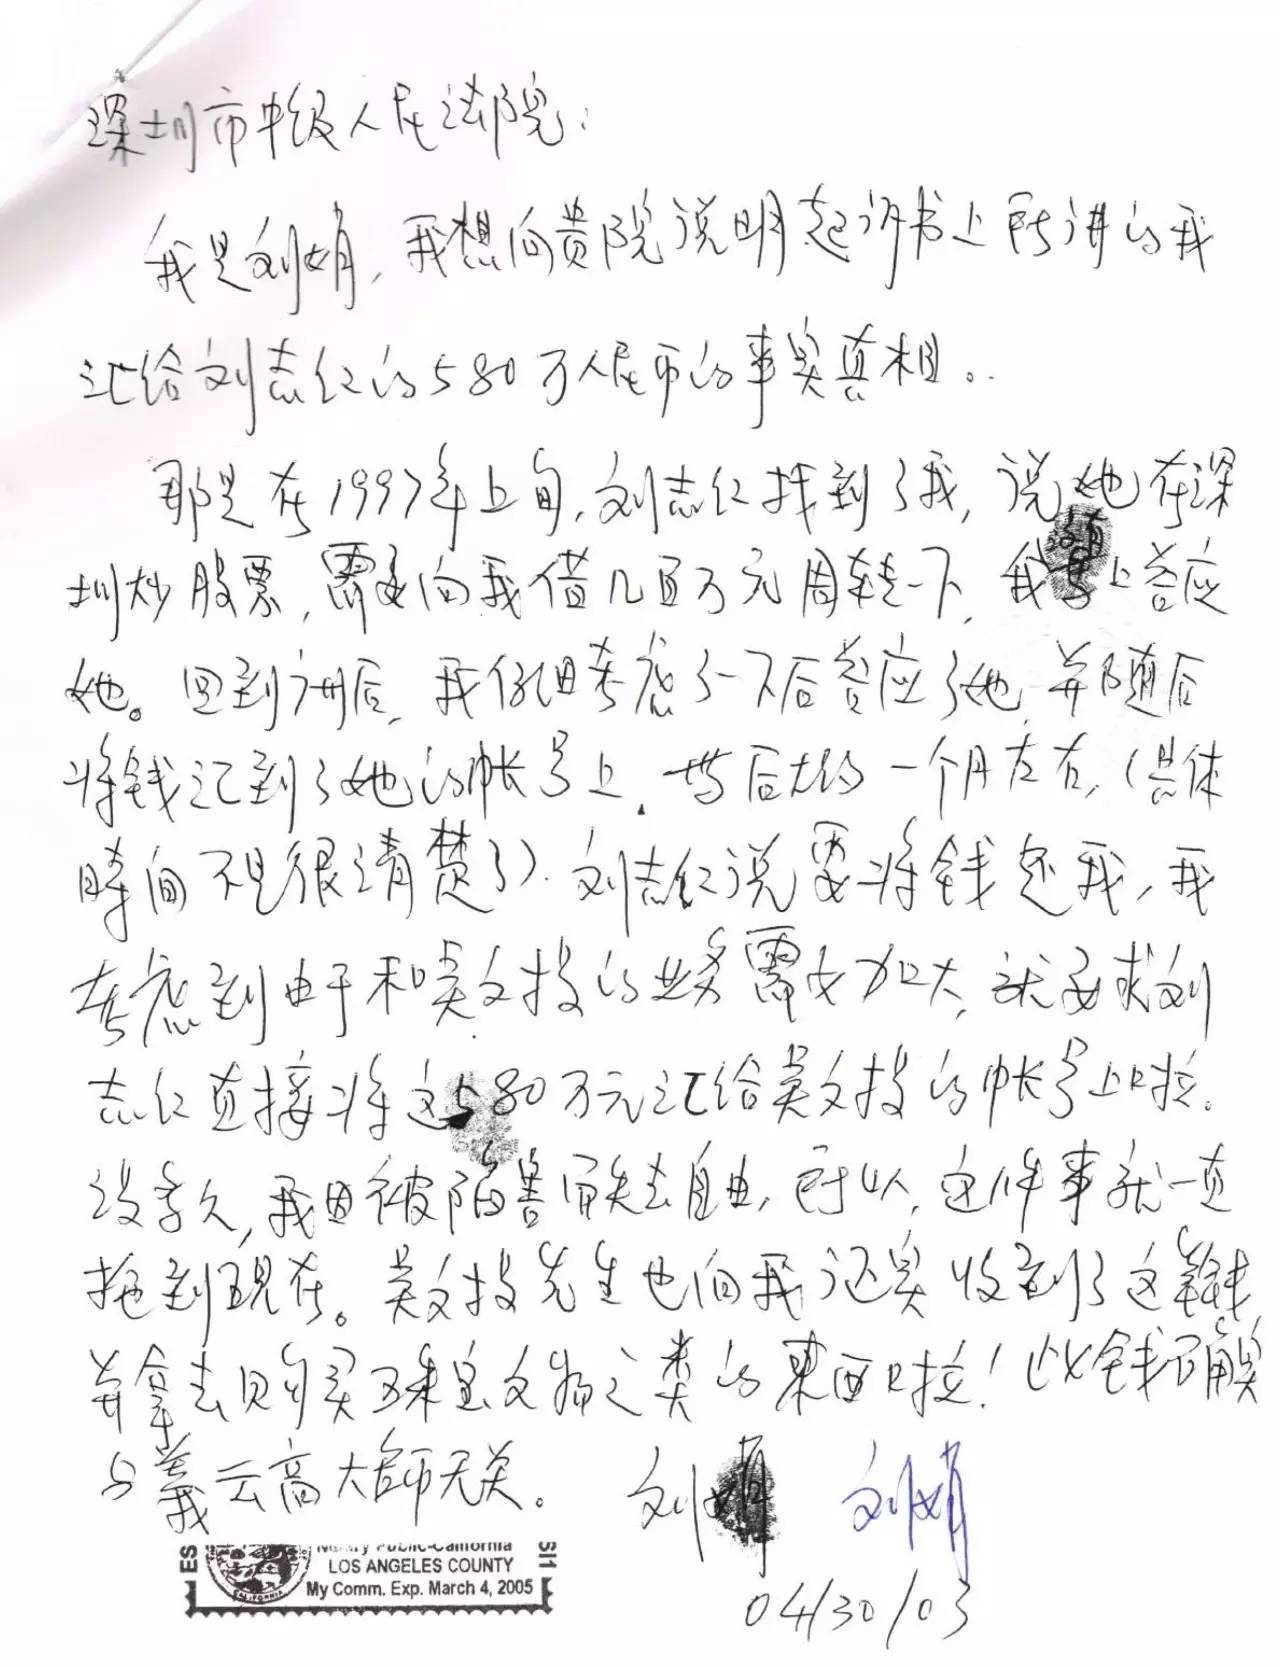 深圳市中级人民法院:
我是刘娟,我想向贵院说明起诉书上所讲的我
汇给刘志仁的580万人民币的事实真相。
那是在1997年上旬,刘志仁找到了我,说她在深
圳炒股票,需要向我借几百万元周转一下,我马上答应
她。回到广州后,我仔细考虑了一下后答应了她,并随后
将钱汇到了她的帐号上。 后大约一个月左右,(具体
時间不是很清楚了)。刘志仁说要将钱还我,我
考虑到由于和吴文投的业务需要加大,就要求刘
志仁直接将这580万元汇给吴文投的帐号上啦。
没多久,我因被陷害而失去自由,所以,这件事就一直
拖到现在。吴文投先生也向我证实收到了这筆钱
并拿去购买珠宝文物之类的東西啦!此钱确实
与義云高大師无关。
刘娟 刘娟
04/30/03
Notary Public-California
LOS ANGELES COUNTY
My Comm. Exp. March 4, 2005